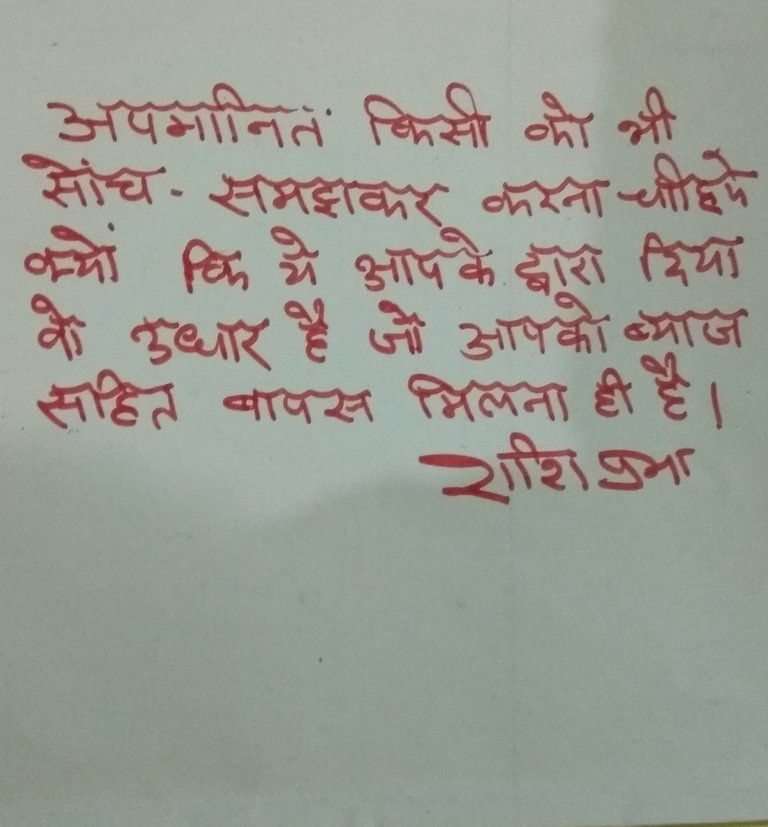 अपमानित किसी को भी
सोंच - समझकर करना चाहिये
क्यों कि ये आप के द्वारा दिया
वो उधार है जो आपको ब्याज
सहित वापस मिलना ही है।
राशि प्रभा